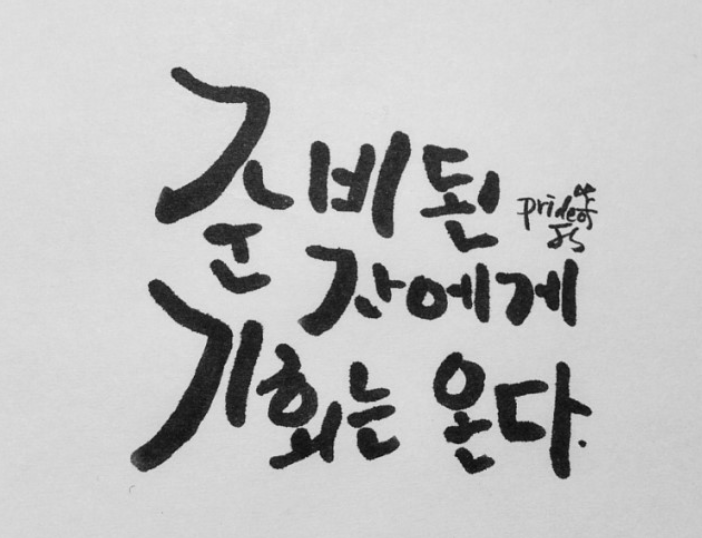 준비된
자에게
기회는 온다.
pride